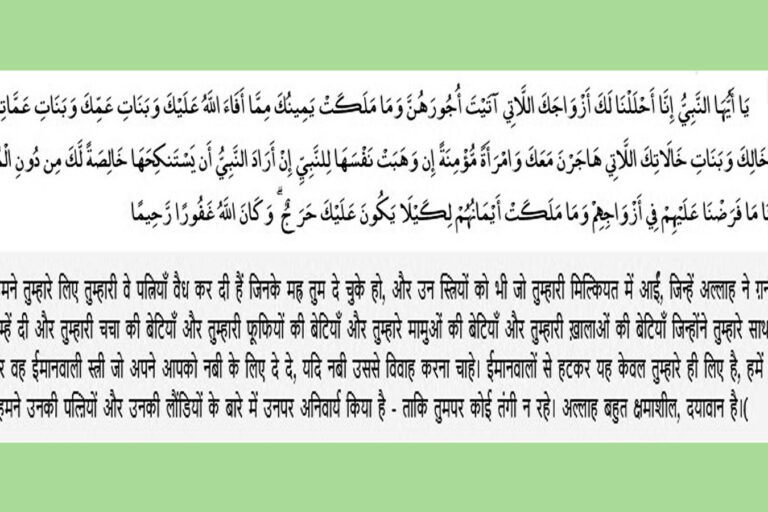 يَا أَيُّهَا النَّبِيُّ إِنَّا أَحْلَلْنَا لَكَ أَزْوَاجَكَ اللَّاتِي آتَيْتَ أُجُورَهُنَّ وَمَا مَلَكَتْ يَمِينُكَ مِمَّا أَفَاءَ اللَّهُ عَلَيْكَ وَبَنَاتِ عَمِّكَ وَبَنَاتِ
خَالِكَ وَبَنَاتِ خَالَاتِكَ اللَّاتِي هَاجَرْنَ مَعَكَ وَامْرَأَةً مُّؤْمِنَةً إِن وَهَبَتْ نَفْسَهَا لِلنَّبِيِّ إِنْ أَرَادَ النَّبِيُّ أَن يَسْتَنكِحَهَا خَالِصَةً لَّكَ مِن دُونِ
مَا فَرَضْنَا عَلَيْهِمْ فِي أَزْوَاجِهِمْ وَمَا مَلَكَتْ أَيْمَانُهُمْ لِكَيْلَا يَكُونَ عَلَيْكَ حَرَجٌ ۗ وَكَانَ اللَّهُ غَفُورًا رَّحِيمًا
मने तुम्हारे लिए तुम्हारी वे पत्नियाँ वैध कर दी हैं जिनके मह्र तुम दे चुके हो, और उन स्त्रियों को भी जो तुम्हारी मिल्कियत में आईं, जिन्हें अल्लाह ने
म्हें दी और तुम्हारी चचा की बेटियाँ और तुम्हारी फूफियों की बेटियाँ और तुम्हारे मामुओं की बेटियाँ और तुम्हारी ख़ालाओं की बेटियाँ जिन्होंने तुम्हारे साथ
र वह ईमानवाली स्त्री जो अपने आपको नबी के लिए दे दे, यदि नबी उससे विवाह करना चाहे। ईमानवालों से हटकर यह केवल तुम्हारे ही लिए है, हमें
हमने उनकी पत्नियों और उनकी लौंडियों के बारे में उनपर अनिवार्य किया है - ताकि तुमपर कोई तंगी न रहे। अल्लाह बहुत क्षमाशील, दयावान है।(